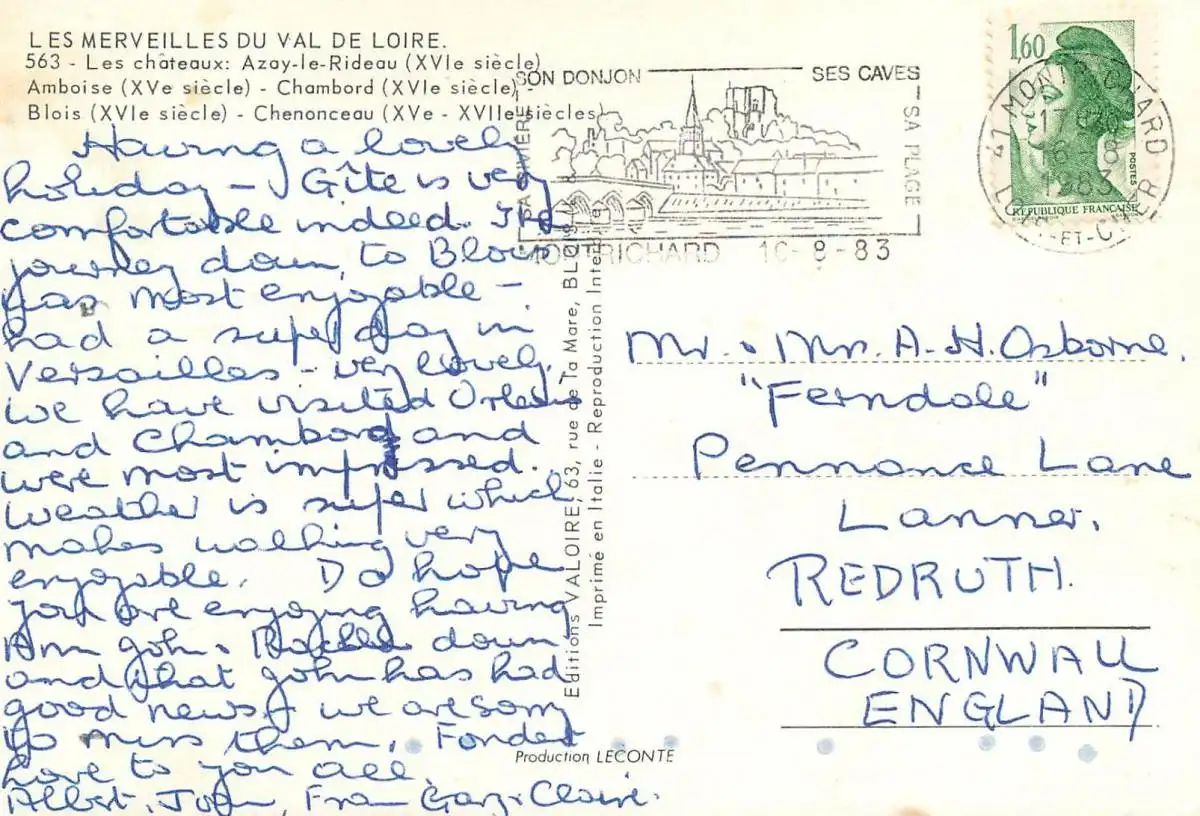 LES MERVEILLES DU VAL DE LOIRE.
563 - Les châteaux: Azay-le-Rideau (XVIe siècle)
Amboise (XVe siècle) - Chambord (XVIe siècle) -
Blois (XVIe siècle) - Chenonceau (XVe - XVIIe siècles)
Having a lovely
holiday - Gîte is very
comfortable indeed. The
journey down, to Blois
was most enjoyable -
had a super day in
Versailles - very lovely.
We have visited Orleans
and Chambord and
were most impressed.
Weather is super which
makes walking very
enjoyable. Do hope
you are enjoying having
Ann John & down
and that John has had
good news & we are sorry
to miss them. Fondest
love to you all.
Albert, Fran Gary & Claire.
Editions VALOIRE, 63, rue de la Mare, BLOIS
Imprimé en Italie - Reproduction Interdite
Production LECONTE
SON DONJON
SES CAVES
SA RIVIERE
SA PLAGE
MONTRICHARD 16-8-83
1,60
POSTES
REPUBLIQUE FRANÇAISE
41 MONTRICHARD
16 - 8
1983
LOIR-ET-CHER
Mr. & Mrs. A. H. Osborne.
"Ferndale"
Pennance Lane
Lanner.
REDRUTH.
CORNWALL
ENGLAND